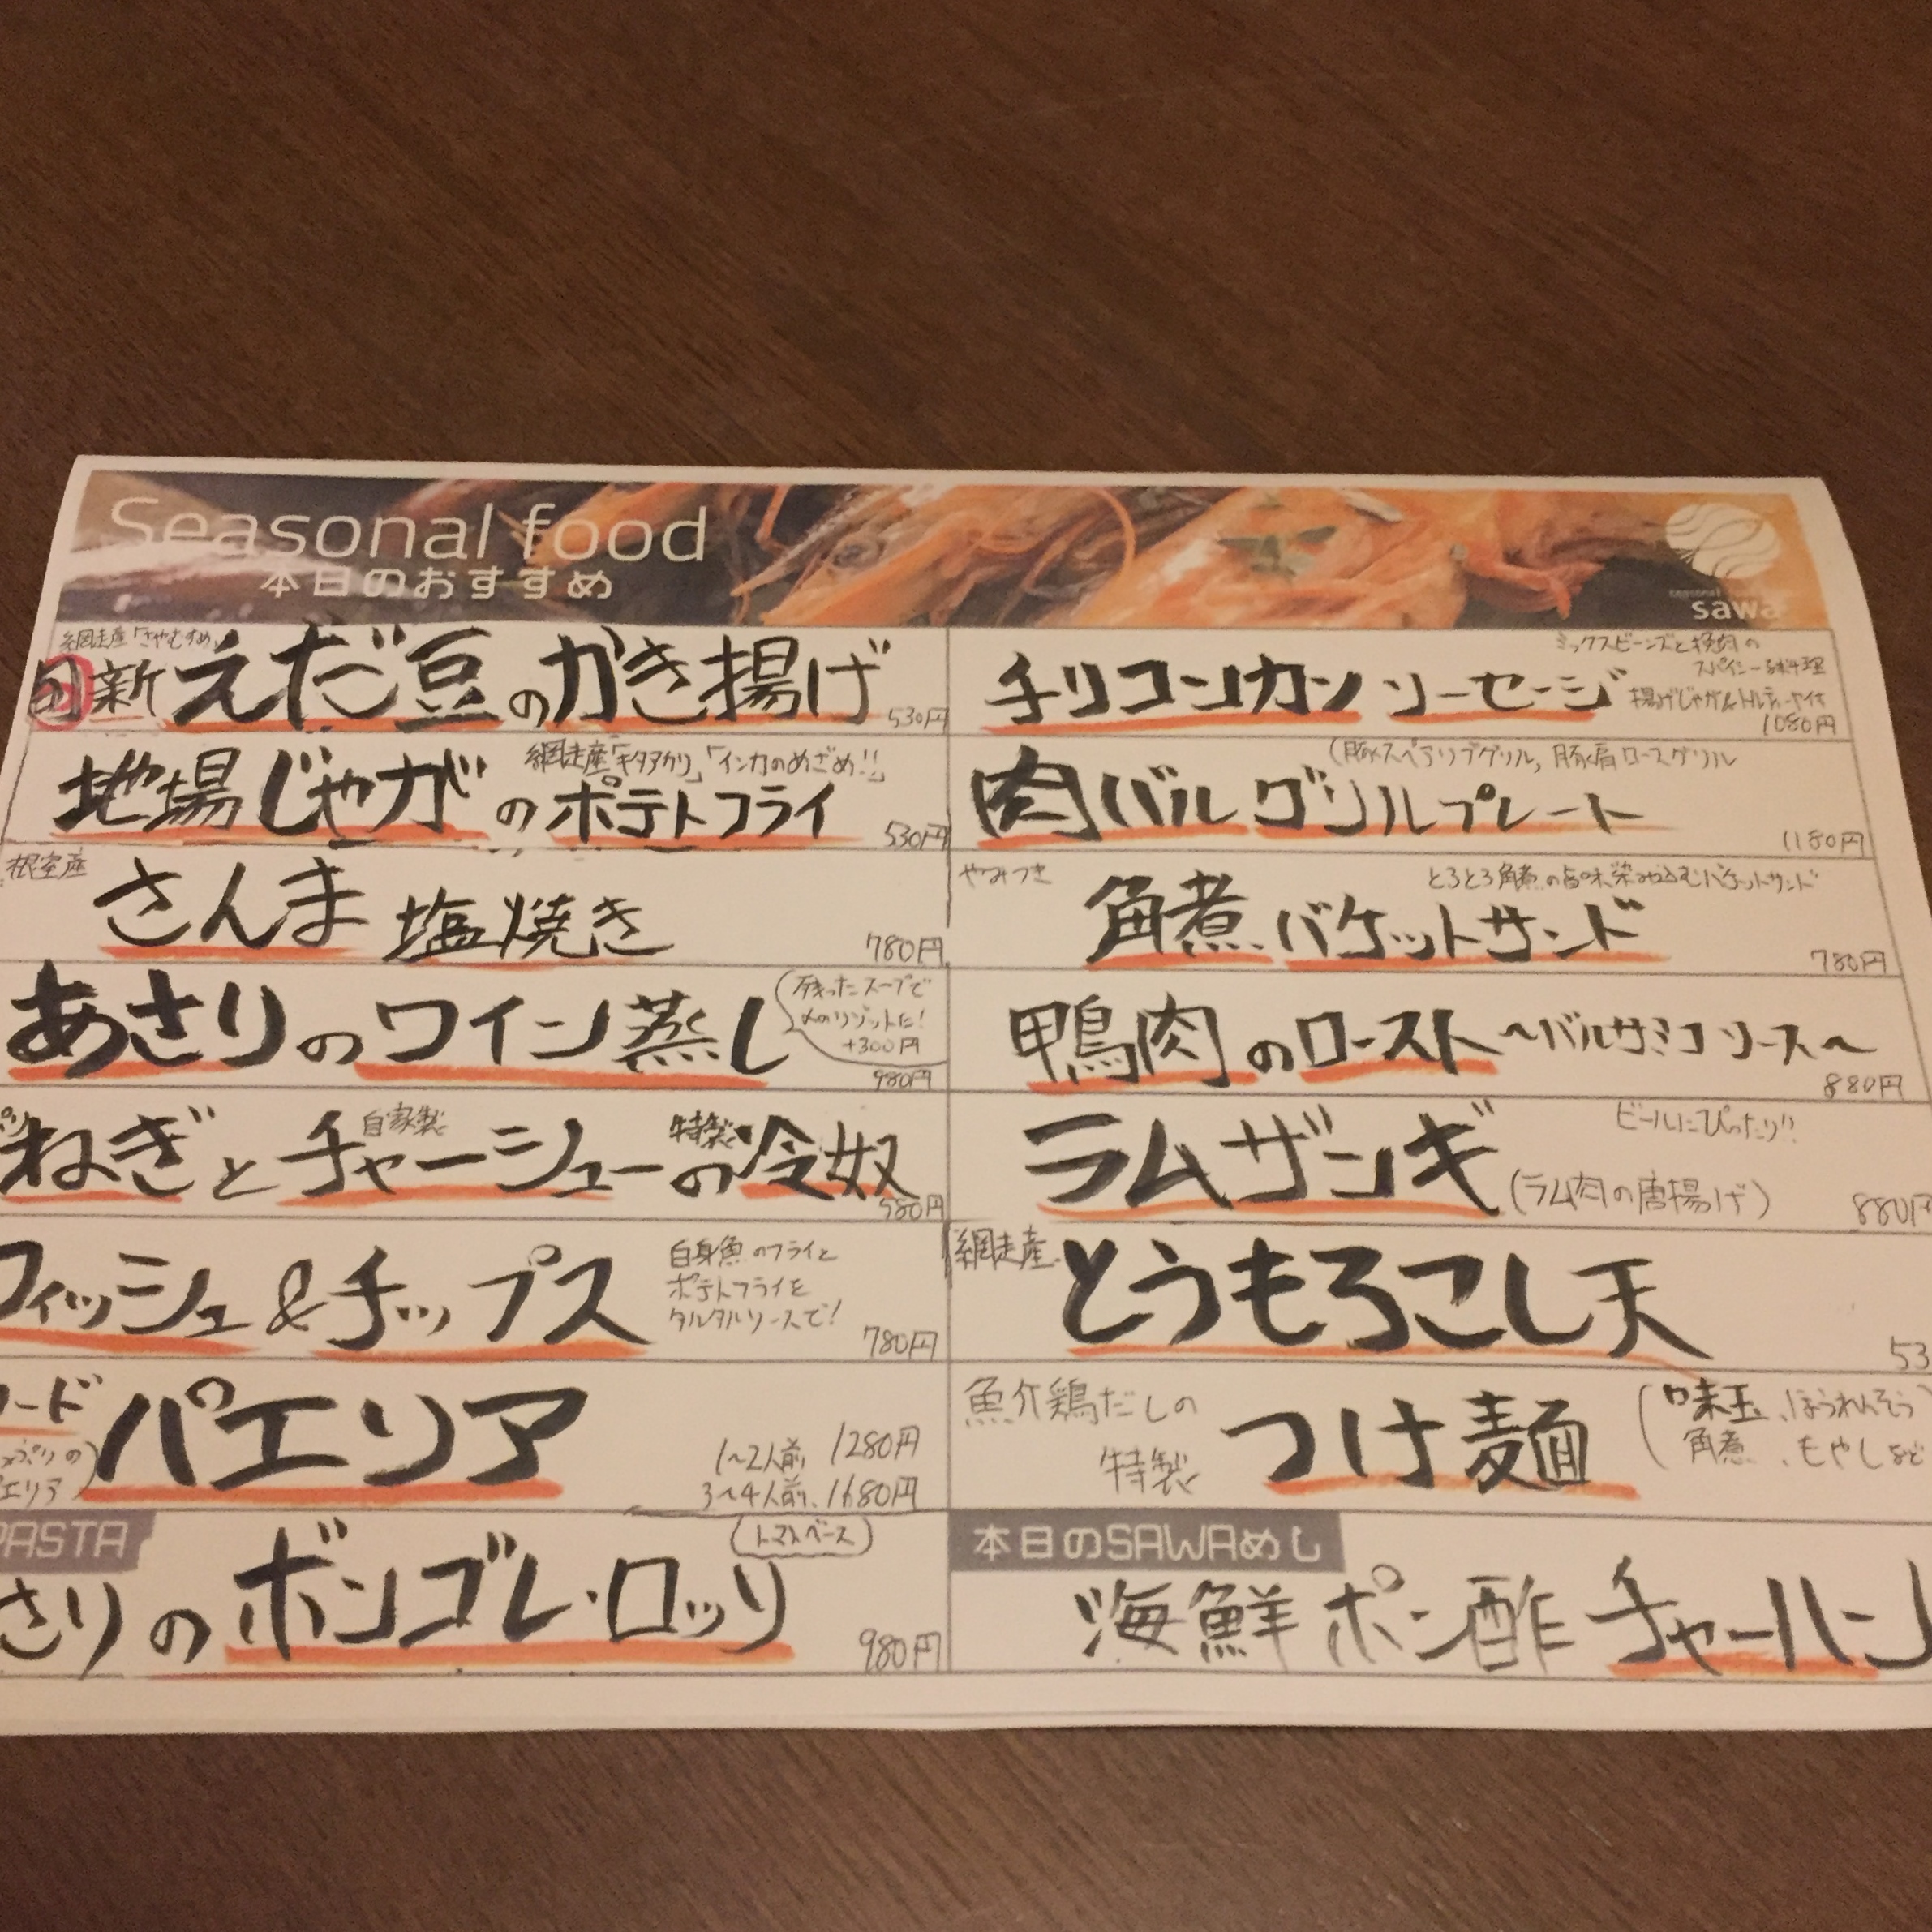 Seasonal food
本日のおすすめ
sawa
網走産「さやむすめ」
旬 新えだ豆のかき揚げ
530円
網走産「キタアカリ」「インカのめざめ!!」
地場じゃがのポテトフライ
530円
根室産
さんま塩焼き
780円
あさりのワイン蒸し
残ったスープで
〆のリゾットに!
+300円
980円
自家製 特製
ねぎとチャーシューの冷奴
580円
フィッシュ&チップス
白身魚のフライと
ポテトフライを
タルタルソースで!
780円
パエリア
1〜2人前 1280円
3〜4人前 1680円
PASTA
(トマトベース)
さりのボンゴレ・ロッソ
980円
ミックスビーンズと挽肉の
スパイシーな料理
チリコンカンソーセージ
1080円
(豚スペアリブグリル, 豚肩ロースグリル
肉バルグリルプレート
1180円
やみつき
とろとろ角煮の旨味染み込むバケットサンド
角煮バケットサンド
780円
鴨肉のロースト〜バルサミコソース〜
880円
ビールにぴったり!!
ラムザンギ(ラム肉の唐揚げ)
880円
網走産
とうもろこし天
53
魚介鶏だしの
特製
つけ麺
(味玉、ほうれんそう
角煮、もやしなど
本日のSAWAめし
海鮮ポン酢チャーハン